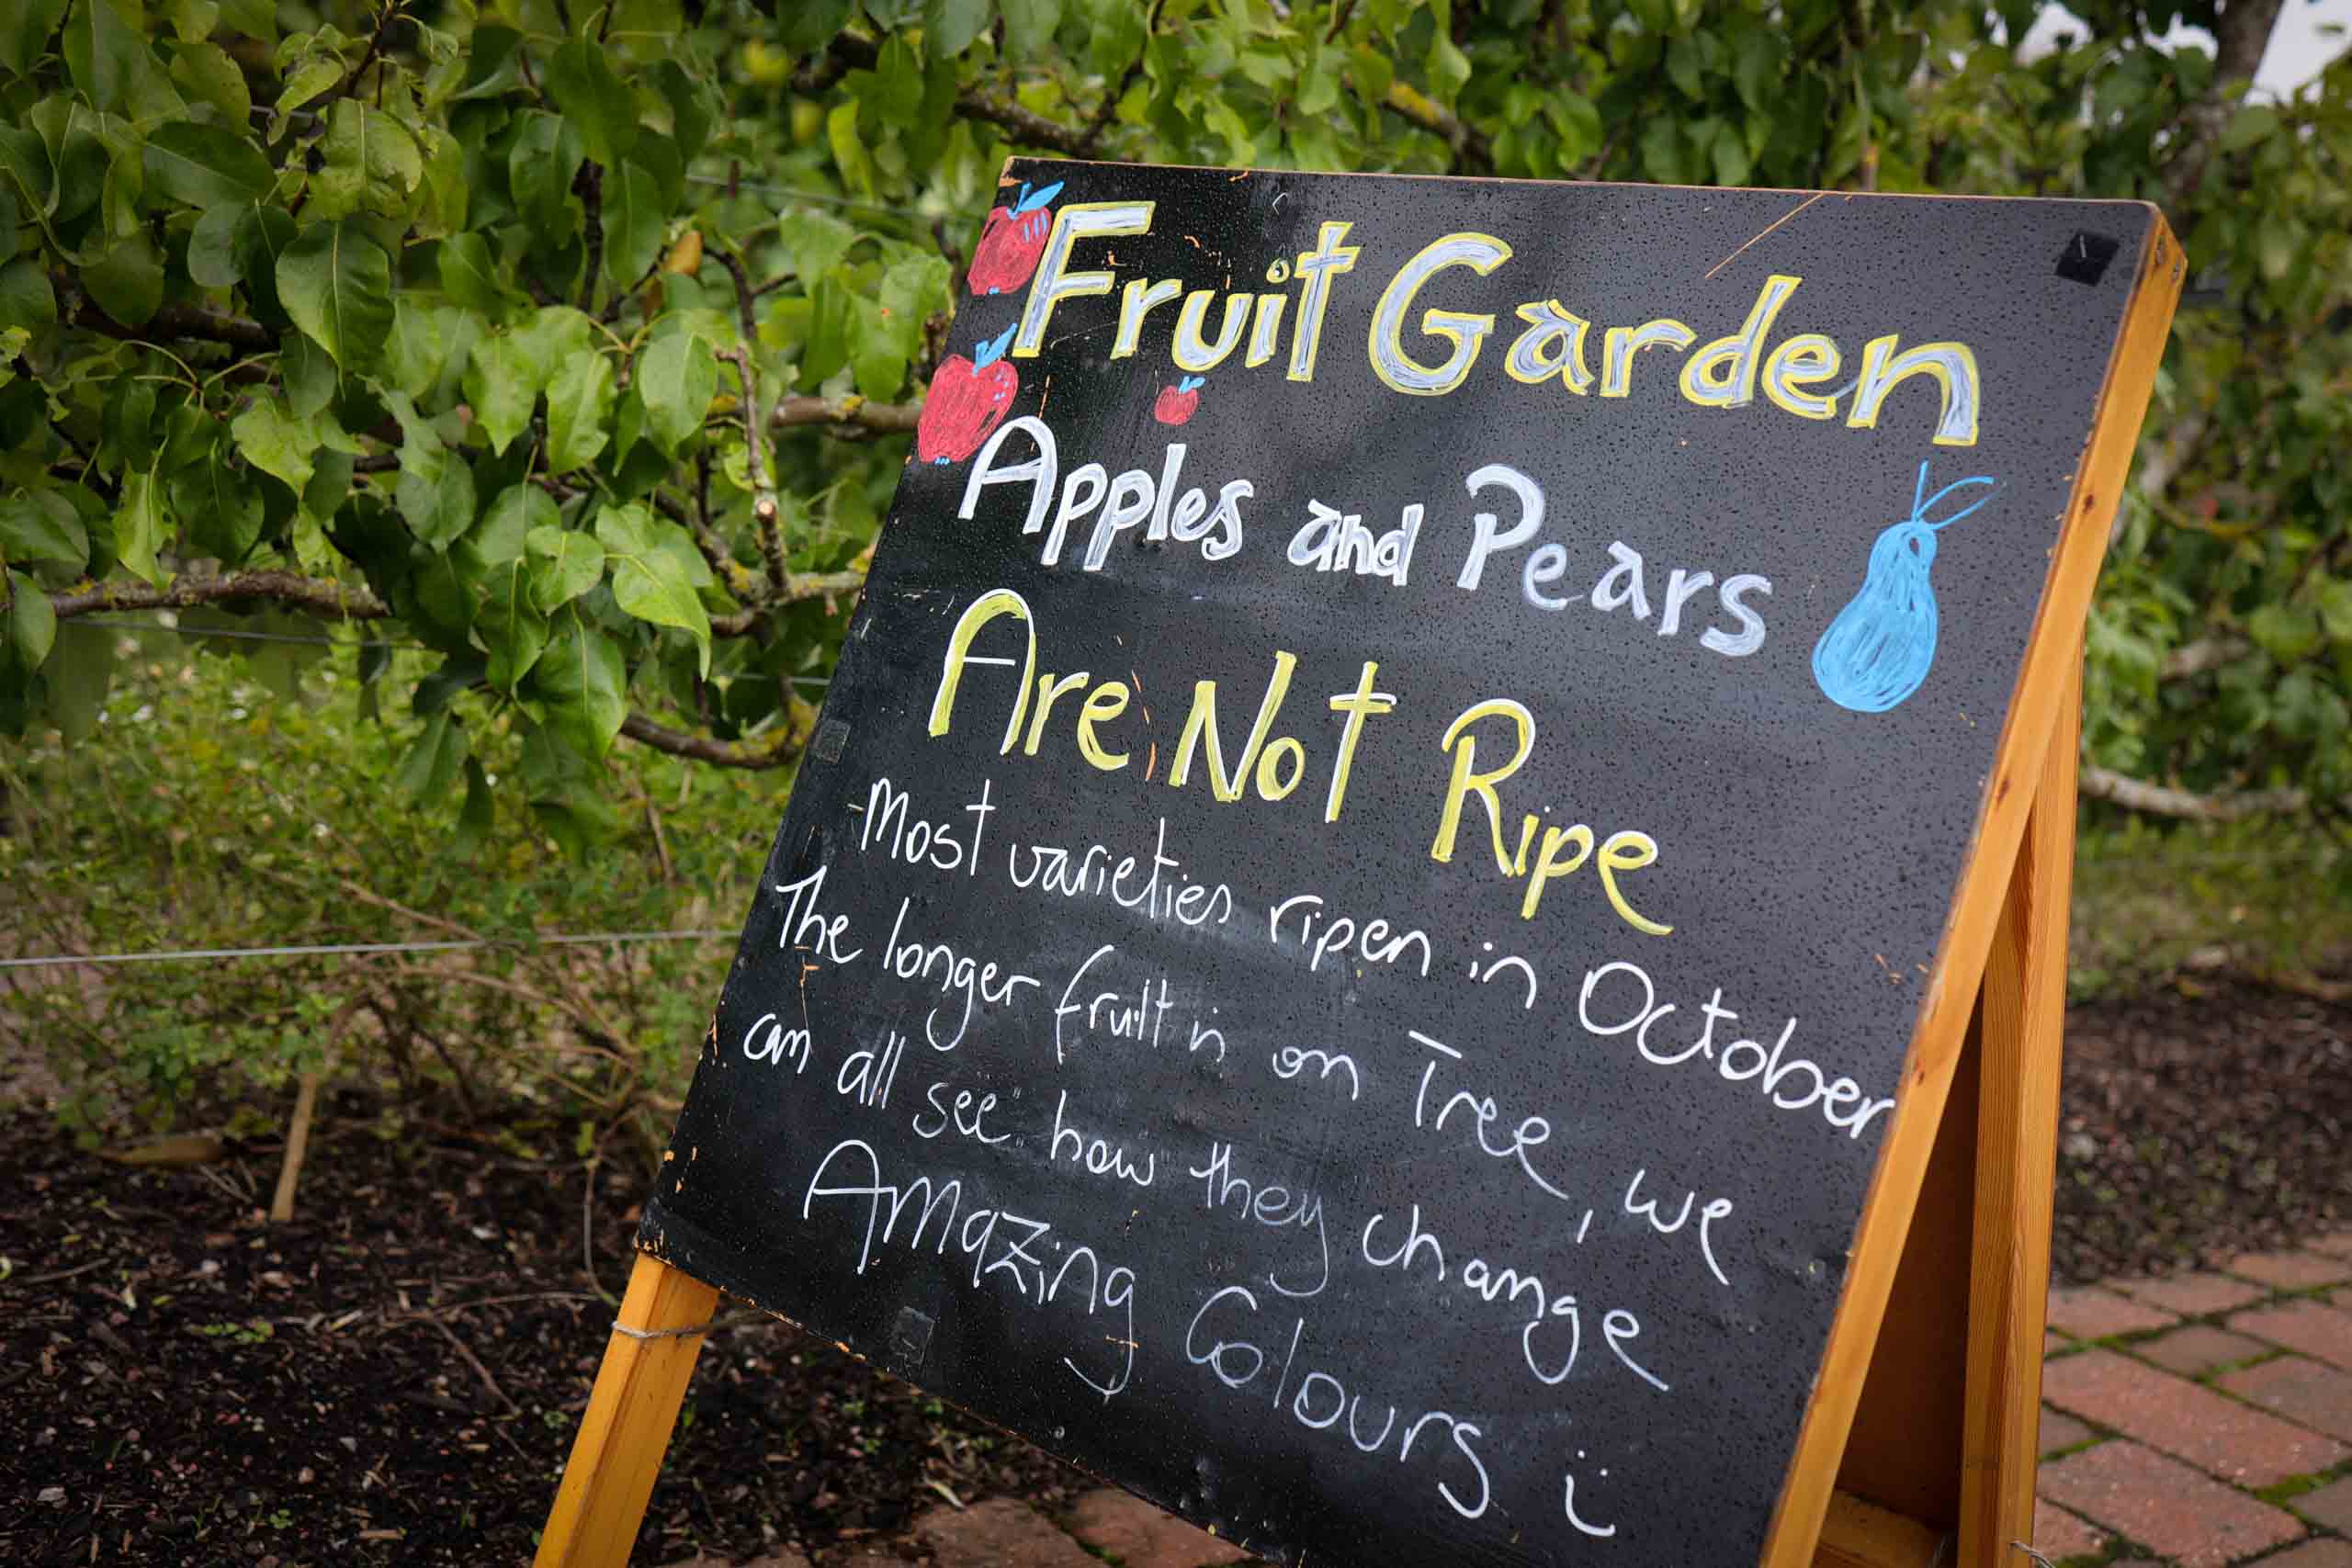 Fruit Garden
Apples and Pears
Are Not Ripe
Most varieties ripen in October
The longer fruit is on Tree, we
can all see how they change
Amazing Colours